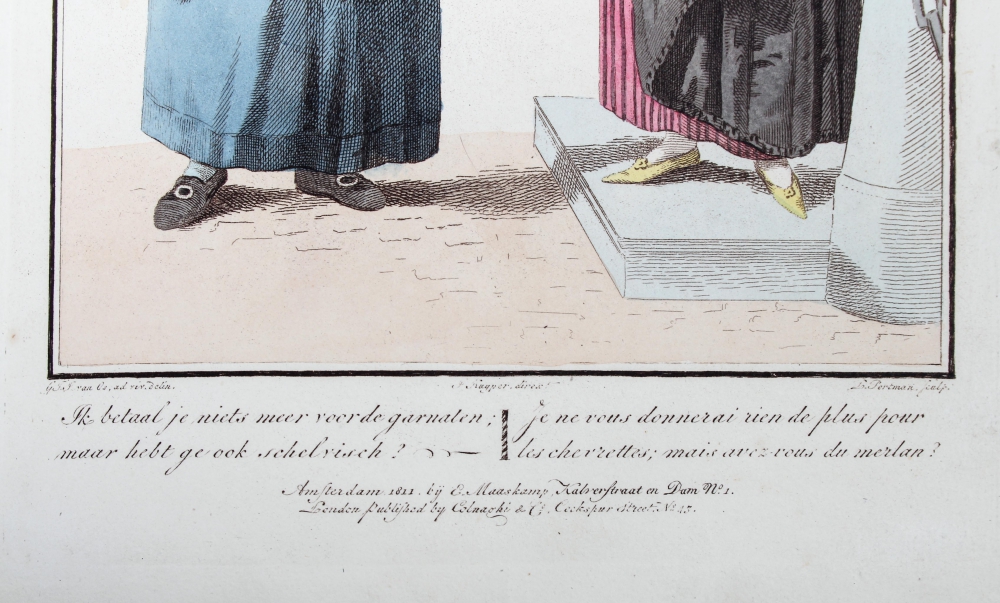 G. J. J. van Os, ad viv. delin.
J. Kuyper, direx.
L. Portman, sculp.
Ik betaal je niets meer voor de garnaten;
maar hebt ge ook schelvisch?
je ne vous donnerai rien de plus pour
les chevrettes; mais avez-vous du merlan?
Amsterdam 1811. bij E. Maaskamp, Kalverstraat en Dam No. 1.
London published by Colnaghi & Co. Cockspur Street. No.